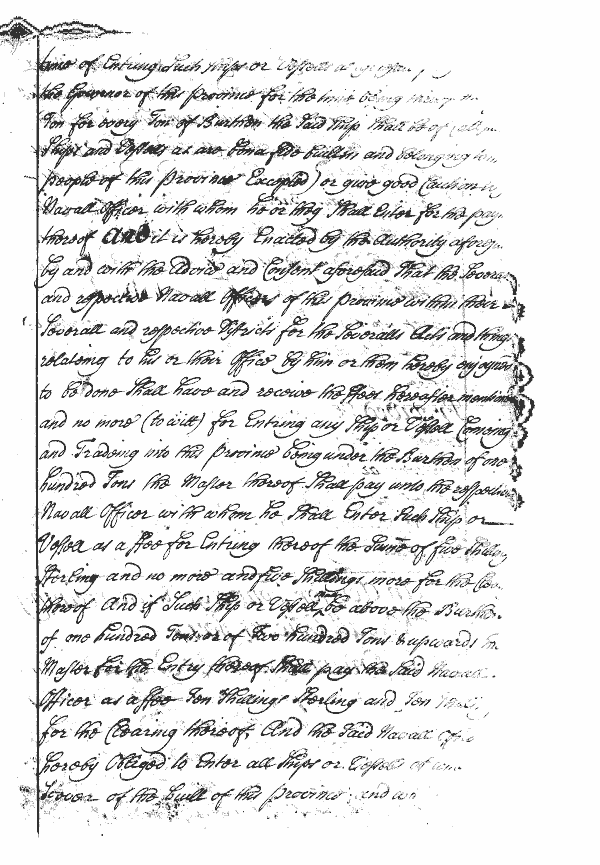 time of Entring Such Ships or Vessells as
the Governor of this Province for the time being
Ton for every Ton of Burthen the Said Ship Shall be of
Ships and Vessells as are bona fide built in and belonging
people of this Province Excepted) or give good Caution
Navall Officer with whom he or they Shall Enter for the pay
thereof And it is hereby Enacted by the Authority
by and with the Advice and Consent aforesaid That the Severa
and respective Navall Officers of this Province within their
Severall and respective Districts for the Severalls Acts and things
relateing to his or their Office by him or them hereby enjoyned
to be done Shall have and receive the ffees hereafter mentioned
and no more (to witt) for Entring any Ship or Vessell Comeing
and Tradeing into this Province being under the Burthen of one
hundred Tons the Master thereof Shall pay unto the respective
Navall Officer with whom he Shall Enter Such Ship or
Vessell as a ffee for Entring thereof the Sume of five Shillings
Sterling and no more and five Shillings more for the
thereof And if Such Ship or Vessell be above the Burthen
of one hundred Tons or of Two hundred Tons & upwards
Master for the Entry thereof Shall pay the Said Navall
Officer as a ffee Ten Shillings Sterling and Ten
for the Clearing thereof, And the Said Navall
hereby Obliged to Enter all Ships or Vessells of
Soever of the built of this Province and